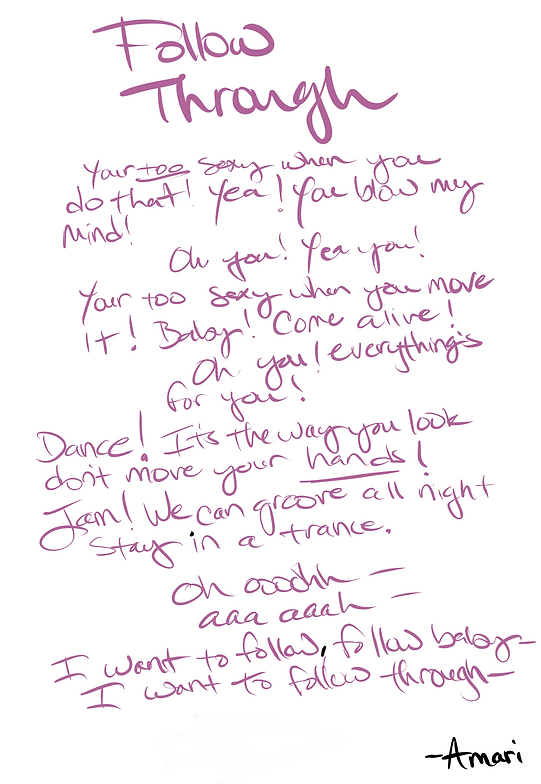 Follow
Through
Your too sexy when you
do that! Yea! You blow my
Mind!
Oh you! Yea you!
Your too sexy when you move
it! Baby! Come alive!
Oh you! everything's
for you!
Dance! It's the way you look
don't move your hands!
Jam! We can groove all night
Stay in a trance.
Oh ooohh —
aaa aaah —
I want to follow, follow baby—
I want to follow through—
-Amari